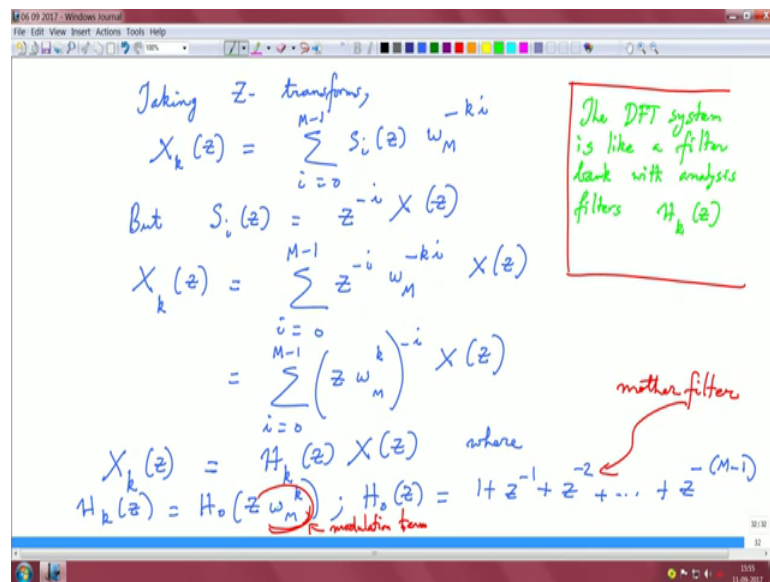 06 09 2017 - Windows Journal
File Edit View Insert Actions Tools Help
100%
Taking Z- transforms,
X_k(z) = \sum_{i=0}^{M-1} S_i(z) ω_M^{-ki}
But S_i(z) = z^{-i} X(z)
X_k(z) = \sum_{i=0}^{M-1} z^{-i} ω_M^{-ki} X(z)
= \sum_{i=0}^{M-1} (z ω_M^k)^{-i} X(z)
X_k(z) = H_k(z) X(z) where
H_k(z) = H_0(z ω_M^k) ; H_0(z) = 1 + z^{-1} + z^{-2} + ... + z^{-(M-1)}
modulation term
mother filter
The DFT system
is like a filter
bank with analysis
filters H_k(z)
32/32
32
15:55
11-09-2017